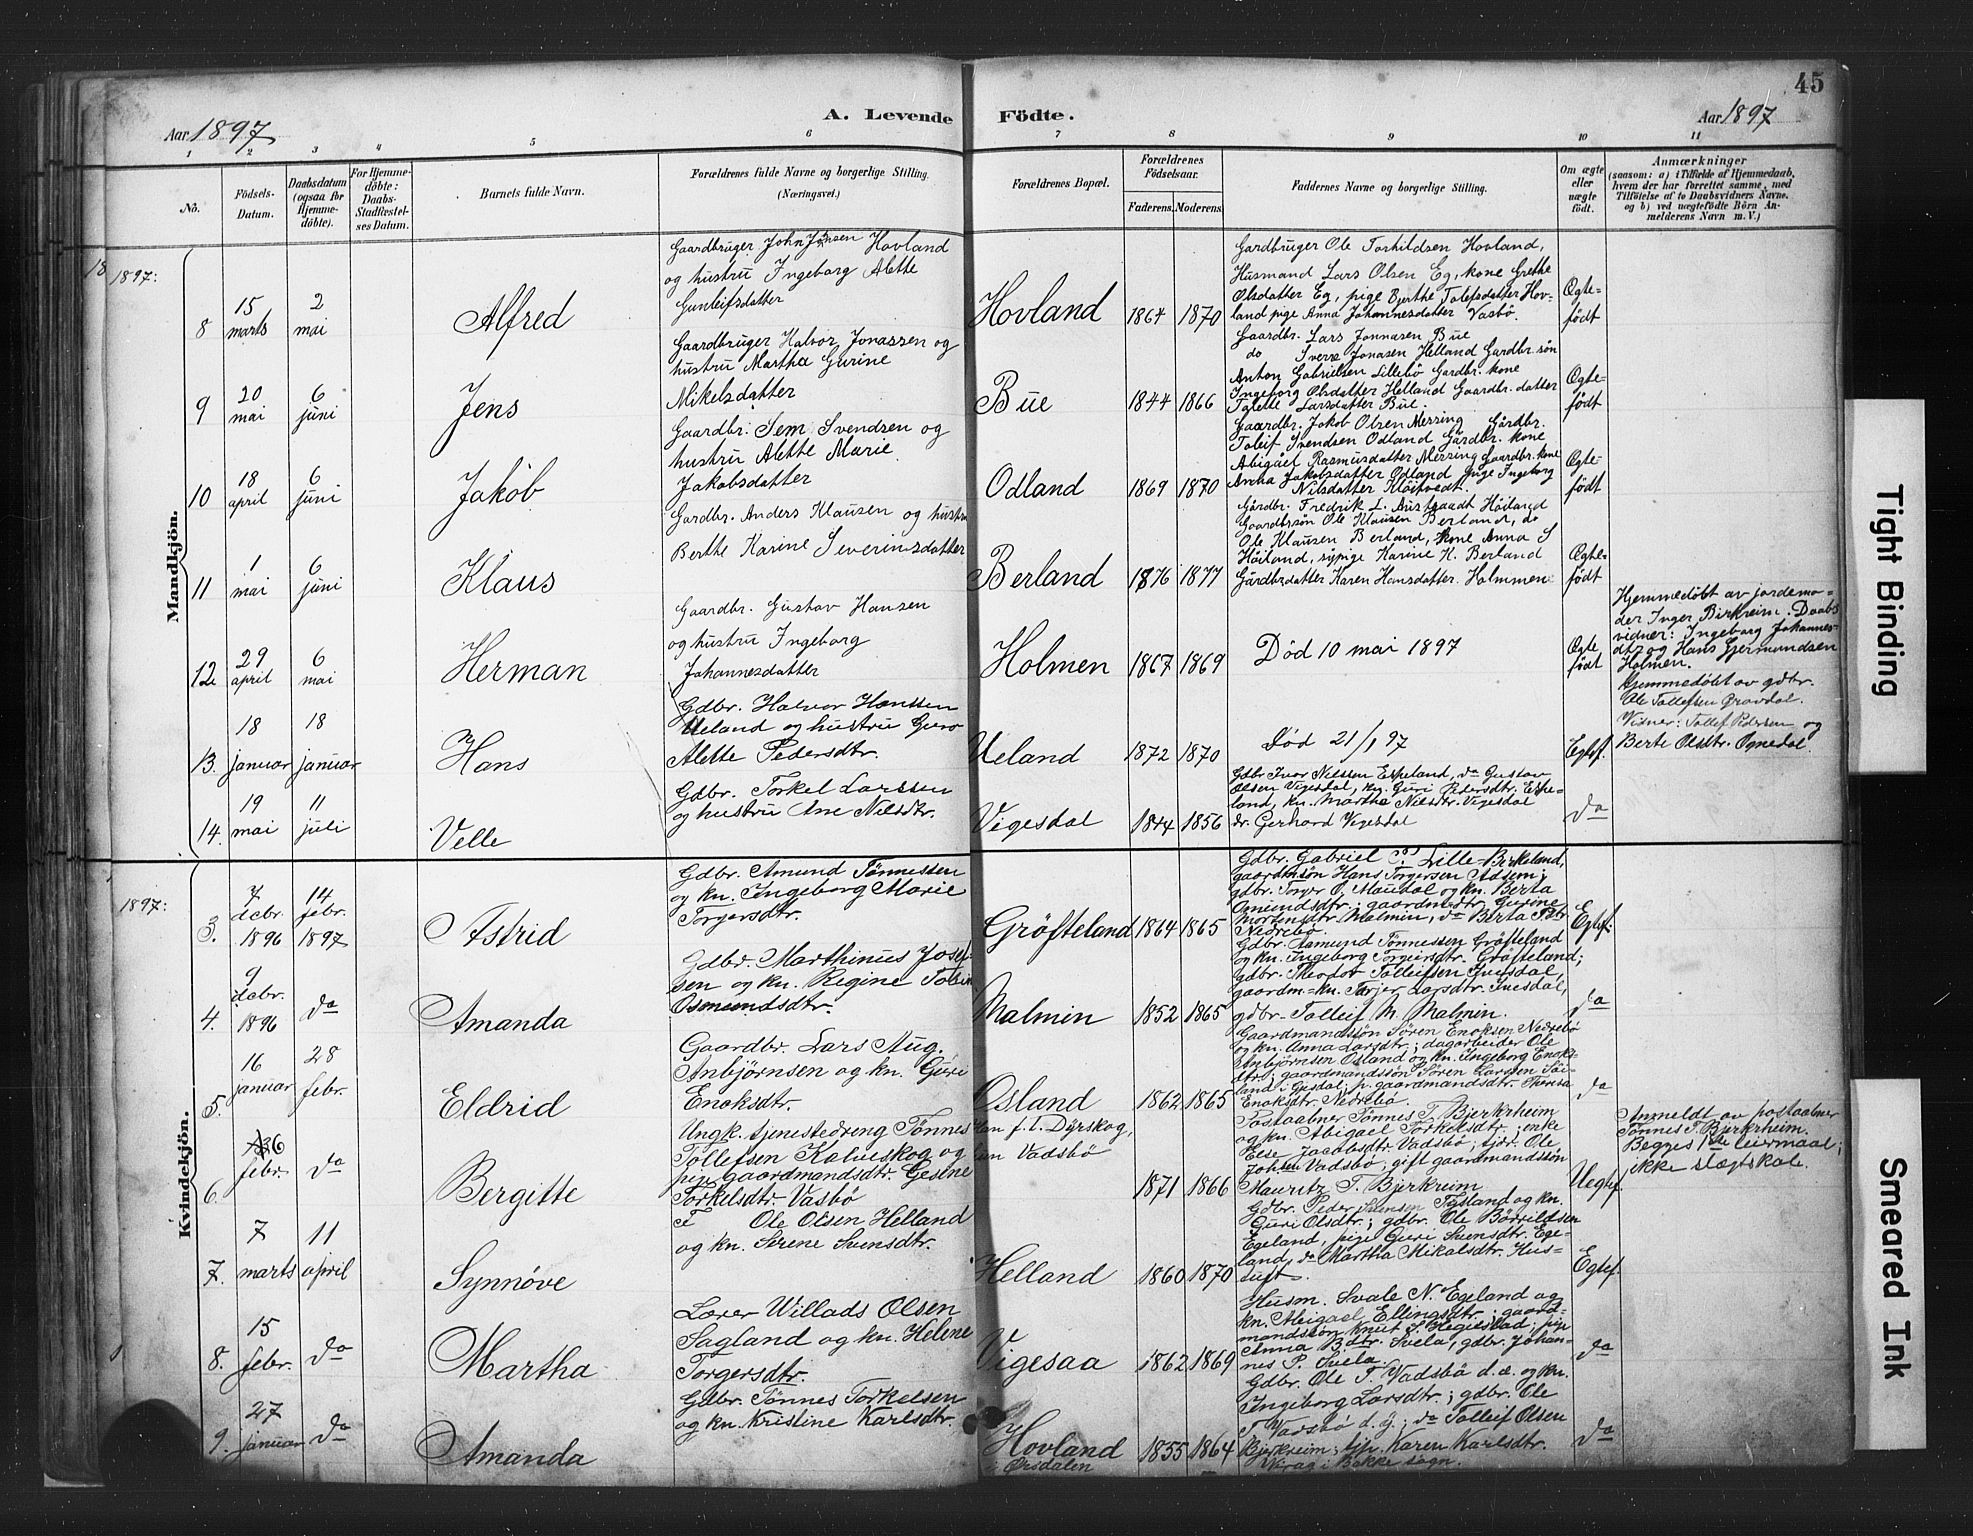 45
A. Levende Födte.
Aar 1897
Aar 1897
1 2 3 4 5 6 7 8 9 10 11
No.
Födsels-Datum.
Daabsdatum (ogsaa for Hjemme-döbte).
For Hjemme-döbte: Daabs-Stadfæstel-ses Datum.
Barnets fulde Navn.
Forældrenes fulde Navne og borgerlige Stilling.
(Næringsvei.)
Forældrenes Bopæl.
Forældrenes Födselsaar.
Faderens. Moderens.
Faddernes Navne og borgerlige Stilling.
Om ægte eller uægte födt.
Anmærkninger
(saasom: a) i Tilfælde af Hjemmedaab,
hvem der har forrettet samme, med
Tilföielse af to Daabsvidners Navne.
og b) ved uægtefödte Börn An-
melderens Navn m. V.)
Mandkjön.
18 1897:
8
15 marts
2 mai
Alfred
Gaardbruger John Jonsen Hovland
og hustru Ingeborg Alette
Gunleifsdatter
Hovland
1864 1870
Gardbruger Ole Torkildsen Hovland,
Husmand Lars Olsen Eg, kone Grethe
Olsdatter Eg, pige Berthe Tolefsdatter Hov-
land pige Anna Johannesdatter Vasbö.
Ogte-
födt
9
20 mai
6 juni
Jens
Gaardbruger Halvor Jonassen og
hustru Martha Gurine
Mikelsdatter
Bue
1844 1866
Gaardbr. Lars Jonnasen Bue
do Sverre Jonasen Helland Gardbr. søn
Anton Gabrielsen Lillebö Gardbr. kone
Ingeborg Olsdatter Helland Gaardbr. datter
Talette Larsdatter Bue.
Ogte-
födt
10
18 april
6 juni
Jakob
Gaardbr. Sem Svendsen og
hustru Alette Marie
Jakobsdatter
Odland
1869 1870
Gaardbr. Jakob Olsen Messing Gårdbr.
Toleif Svendsen Odland Gårdbr. kone
Abigael Rasmusdatter Messing Gaardbr. kone
Anna Jakobsdatter Odland pige Ingeborg
Nilsdatter Klöitvedt.
Ogte-
födt
11
1 mai
6 juni
Klaus
Gardbr. Anders Klausen og hustru
Berthe Karine Severinsdatter
Berland
1876 1877
Gårdbr. Fredrik L. Austraadt Höiland
Gaardbrsön Ole Klausen Berland, do
Ole Klausen Berland, kone Anna S
Höiland, sypige Karine K. Berland
Gårdbrdatter Karen Hansdatter Holmmen
Ogte-
födt
12
29 april
6 mai
Herman
Gaardbr. Gustav Hansen
og hustru Ingeborg
Johannesdatter
Holmen
1867 1869
Död 10 mai 1897
Ogte
födt
Hjemmedöbt av jordemo-
der Inger Birkreim. Daabs
vidner: Ingeborg Johannes-
dtr og Hans Gjermundsen
Holmen.
13.
18 januar
18 januar
Hans
Gdbr. Halvor Hanssen
Ueland og hustru Guro
Alette Pedersdtr.
Ueland
1872 1870
Död 21/1 97
Egtef.
Hjemmedöbt av gdbr.
Ole Tollefsen Gravdal.
Vidner: Tollef Pedersen og
Berte Olsdtr. Ognedal.
14.
19 mai
11 juli
Velle
Gdbr. Torkel Larssen
og hustru Ane Nilsdtr.
Vigesdal
1844 1856
Gdbr Ivar Nilssen Espeland, do Gustav
Olsen Vigesdal, kn. Guri Pedersdtr. Espe-
land, kn. Martha Nilsdtr. Vigesdal
dr. Gerhard Vigesdal
do
Kvindekjön.
1897:
3.
7 dcbr. 1896
14 febr. 1897
Astrid
Gdbr. Amund Tønnessen
og kn. Ingeborg Marie
Torgersdtr.
Gröfteland
1864 1865
Gdbr. Gabriel Lille-Birkeland,
gaardmsön Hans Torgersen Adsem;
gdbr. Torger O. Maudal og kn. Berta
Omundsdtr; gaardmdtr. Gurine
Mortensdtr Malmin, do Berta
Nedrebö.
Egtef.
4.
9 dcbr. 1896
do
Amanda
Gdbr. Marthinus Josef-
sen og kn. Regine
Osmundsdtr.
Malmin
1852 1865
Gdbr. Asmund Tønnessen Gröfteland
og kn. Ingeborg Torgersdtr. Gröfteland;
gdbr. Theodor Tolleifsen Ivesdal,
gaardm-kn. Tarjer Larsdtr. Ivesdal,
gdbr. Tolleif M. Malmin.
do
5.
16 januar
28 febr.
Eldrid
Gaardbr. Lars Aug.
Anbjörnsen og kn. Guri
Enoksdtr.
Osland
1862 1865
Gaardmandssön Sören Enoksen Nedrebö
og kn. Anna Larsdtr; dagarbeider Ole
Anbjörnsen Osland og kn. Ingeborg Enoks-
dtr; gaardmandssön Sören Larsen
land i Gjesdal; p. gaardmandsdtr. Theresa
Enoksdtr. Nedrebö.
do
6.
6 febr.
do
Bergitte
Ungk. tjenestedreng Tønnes
Tollefsen Kalveskog og
pige gaardmandsdtr. Gesine
Torkelsdtr Vasbö
Han f. t. Dyrskog,
hun Vadsbö
1871 1866
Postaabner Tønnes T. Bjerkrheim
og kn. Abigael Torkelsdtr; enke
Else Jacobsdtr Vadsbö; tjdr. Ole
Johsen Vadsbö; gift gaardmandssön
Mauritz T. Bjerkreim
Uegtef.
Anmeldt av postaabner
Tønnes T. Bjerkrheim.
Begges 1ste leiermaal;
ikke slegtskab.
7.
7 marts
11 april
Synnöve
Ole Olsen Helland
og kn. Serene Svensdtr.
Helland
1860 1870
Gdbr. Peder Tysland og kn.
Guri Olsdtr.; gdbr. Ole Börrildsen
Egeland, pige Guri Svensdtr. Ege-
land, do Martha Mikalsdtr. Hus-
tuft.
Egtef.
8.
15 febr.
do
Martha
Lærer Willads Olsen
Sagland og kn. Helene
Torgersdtr.
Vigesaa
1862 1869
Husm. Svale N. Egeland og
kn. Abigael Ellingsdtr; gaard-
mandssön Knut S. Hegrestad; pige
Anna Bdtr. Svela, gdbr. Johan-
nes P. Svela.
do
9.
27 januar
do
Amanda
Gdbr. Tønnes Torkelsen
og kn. Kristine Karlsdtr.
Hovland
i Örsdalen
1855 1864
Gdbr. Ole T. Vadsbö d. e. og kn.
Ingeborg Larsdtr; gdbr. Ole
T. Vadsbö d. y.; do Tolleif Olsen
Bjerkreim; tjp. Karen Karlsdtr.
i Bakke sogn.
do
Tight Binding
Smeared Ink